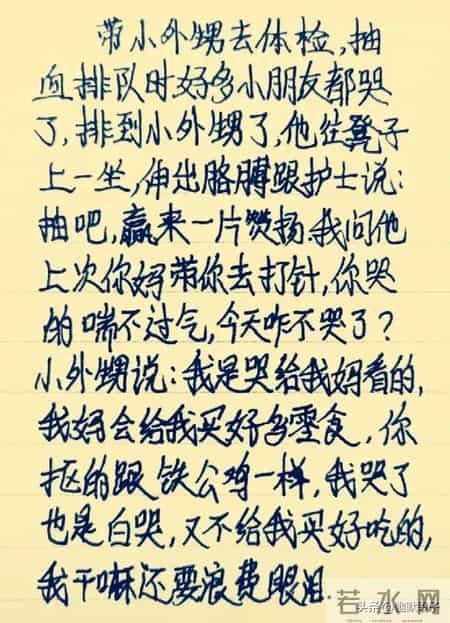 带小外甥去体检,抽
血排队时好多小朋友都哭
了,排到小外甥了,他往凳子
上一坐,伸出胳膊跟护士说:
抽吧,赢来一片赞扬.我问他
上次你妈带你去打针,你哭
的喘不过气,今天咋不哭了?
小外甥说:我是哭给我妈看的,
我妈会给我买好多零食,你
抠的跟铁公鸡一样,我哭了
也是白哭,又不给我买好吃的,
我干嘛还要浪费眼泪.
头条
若水网